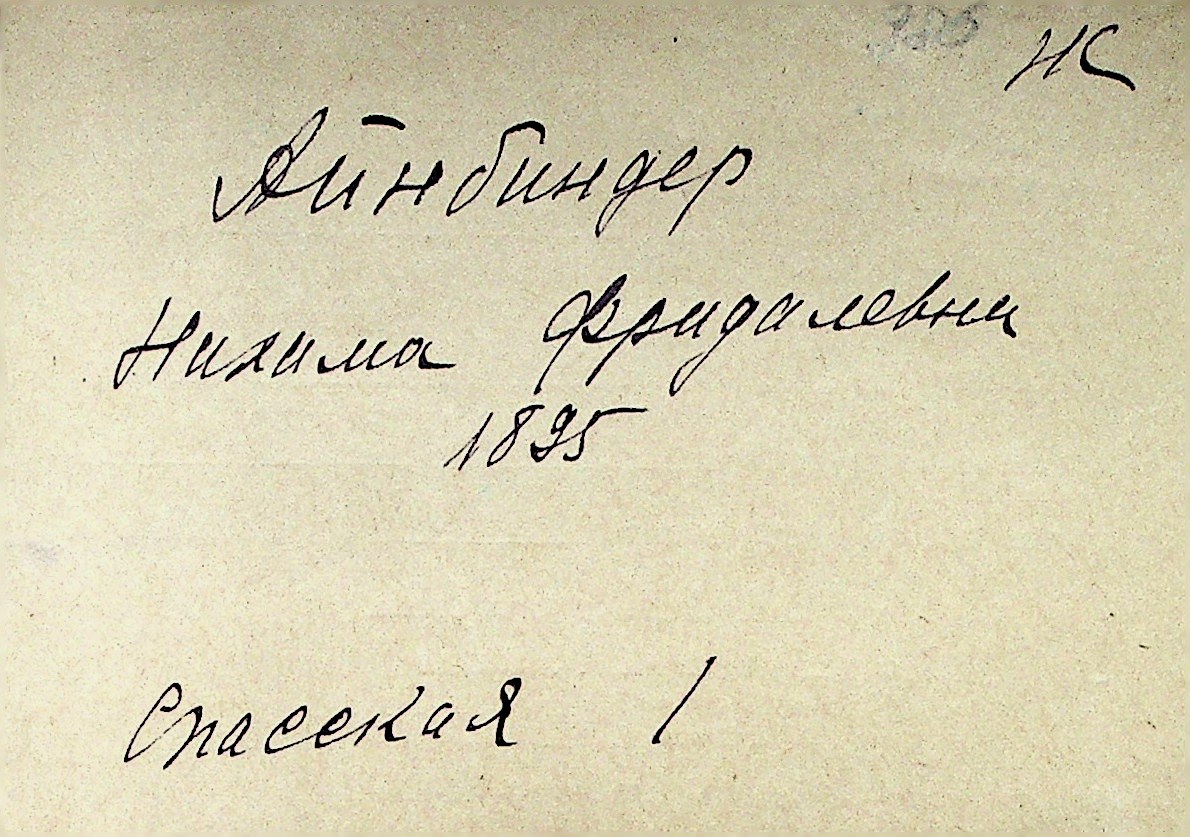 Ж
Айнбиндер
Нихама Фридалевна
1895
Спасская 1